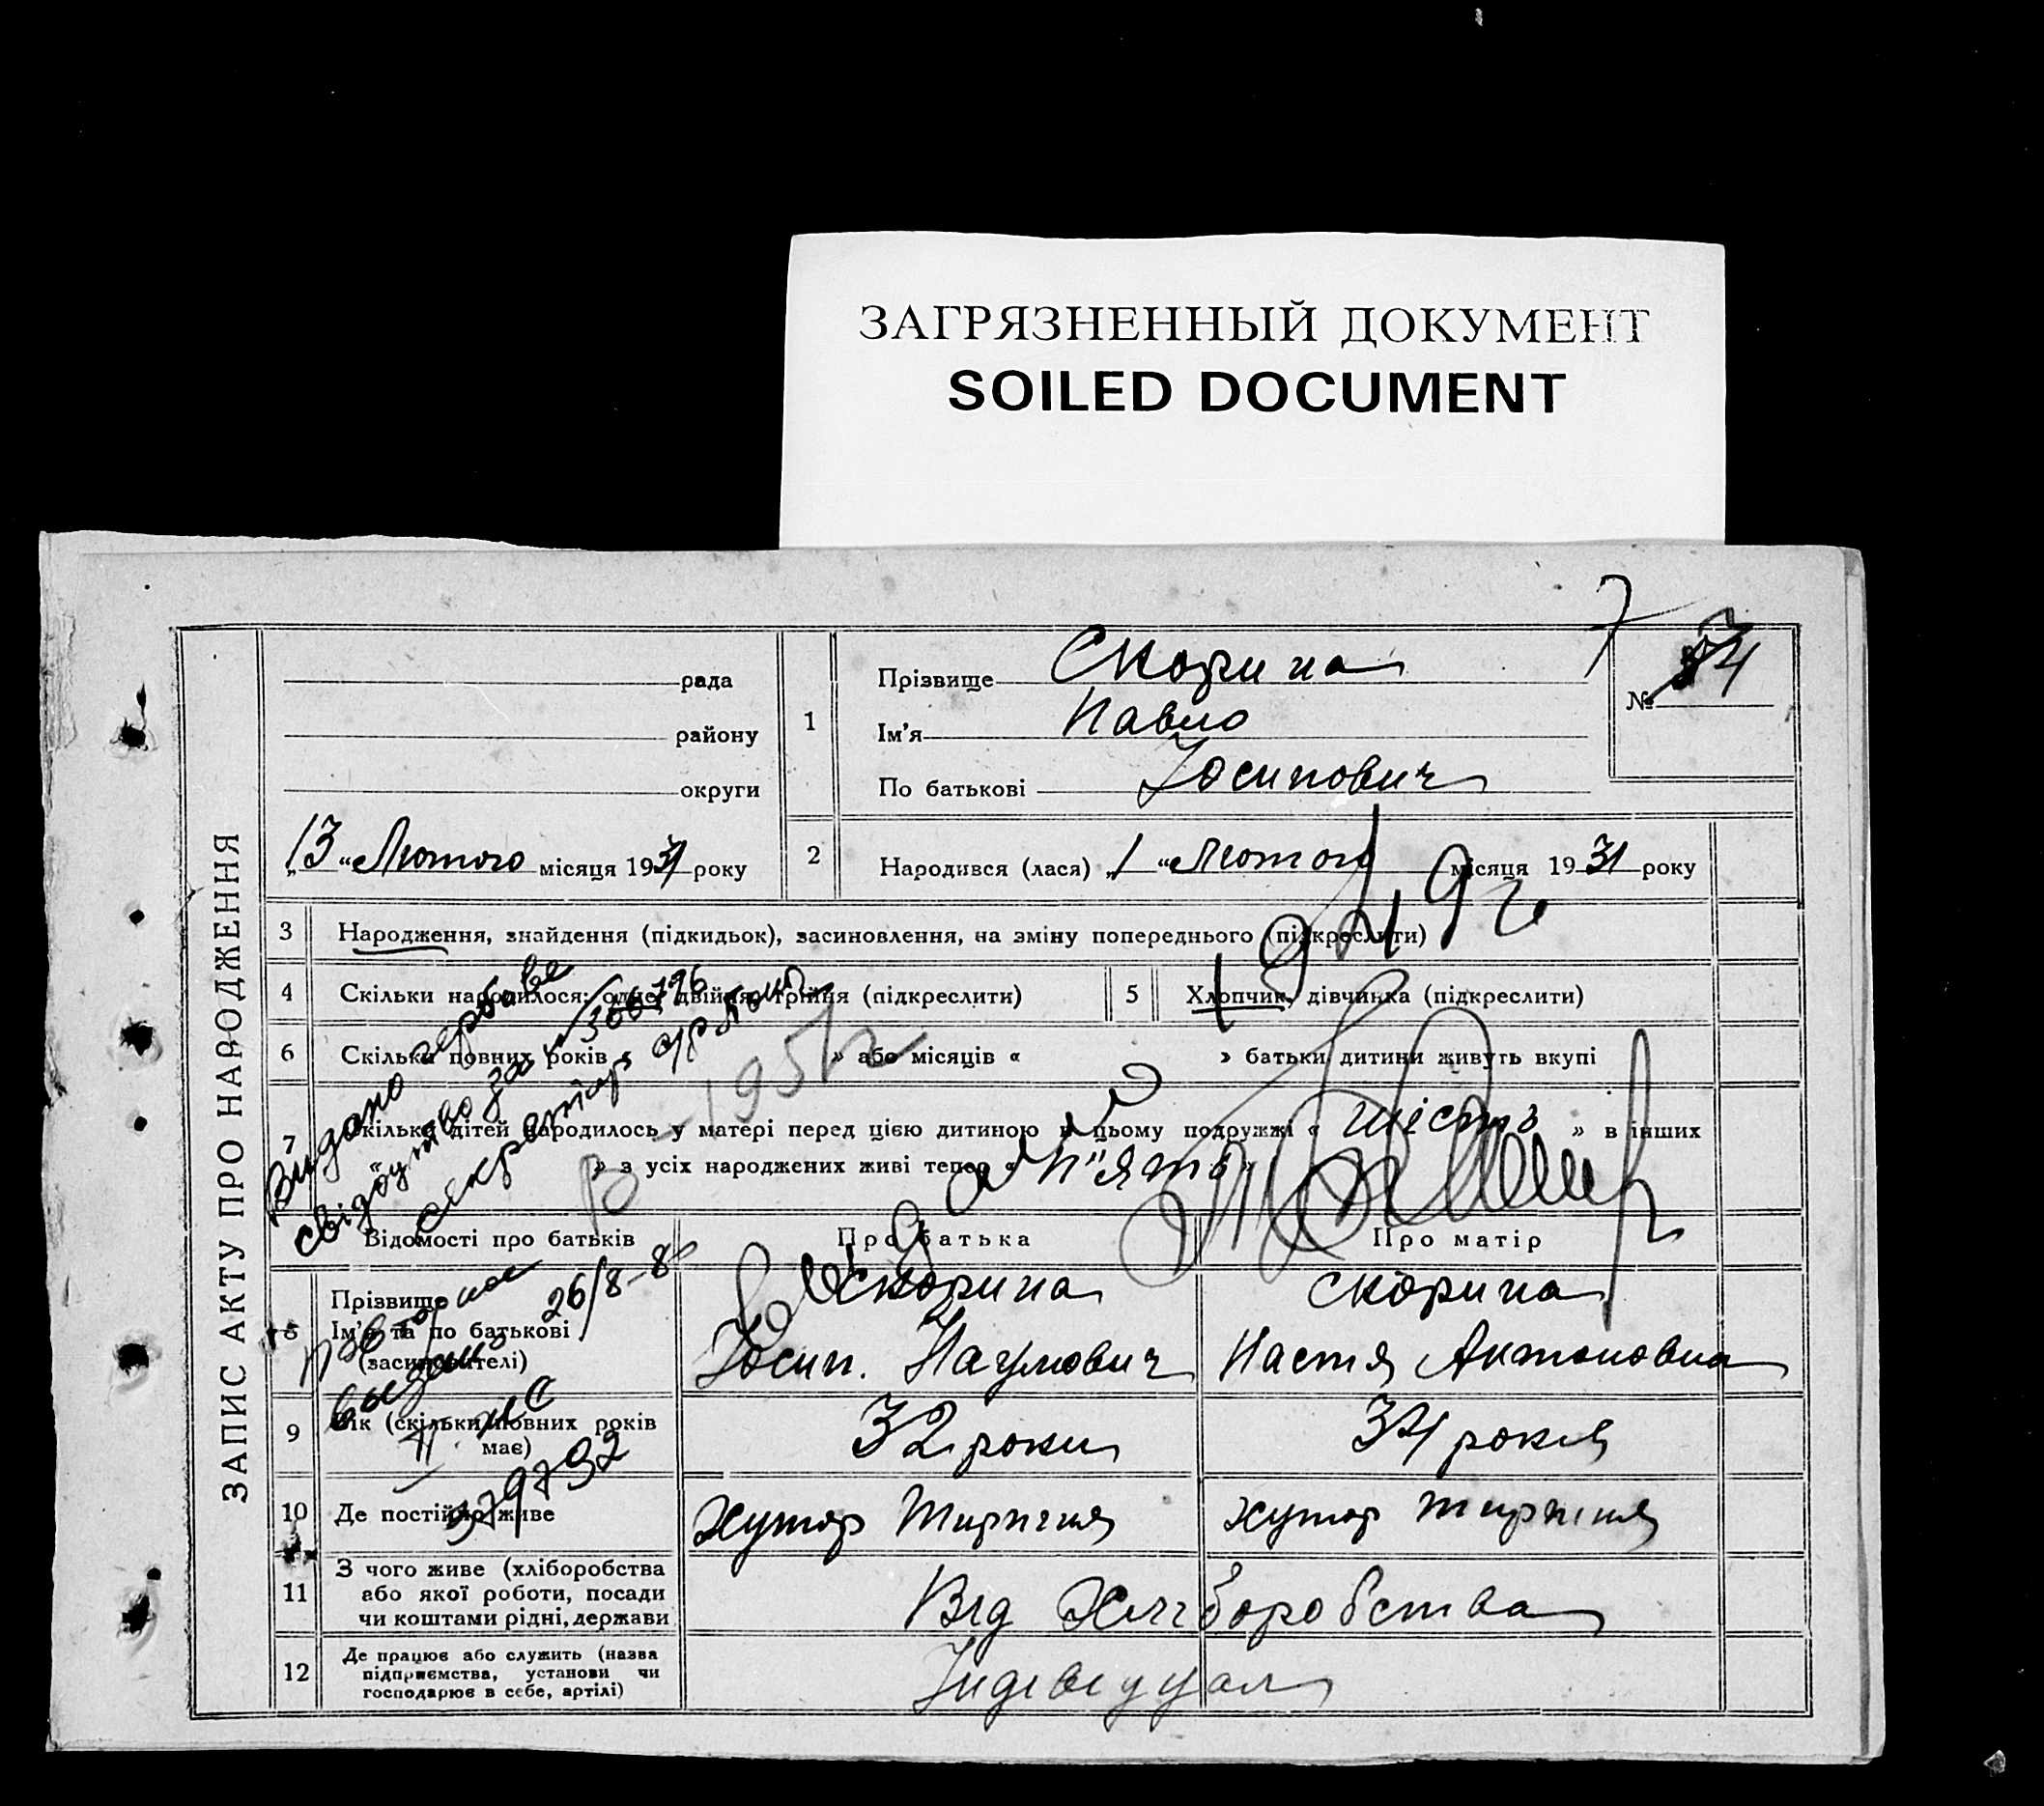 ЗАГРЯЗНЕННЫЙ ДОКУМЕНТ
SOILED DOCUMENT
7
ЗАПИС АКТУ ПРО НАРОДЖЕННЯ
рада
району
округи
„13“ Лютого місяця 1931 року
1
Прізвище Скорина
Ім'я Павло
По батькові Йосипович
№
2 Народився (лася) „1“ Лютого місяця 1931 року
1949 г
3 Народження, знайдення (підкидьок), засиновлення, на зміну попереднього (підкреслити)
4 Скільки народилося: одне, двійня, трійня (підкреслити)
5 Хлопчик, дівчинка (підкреслити)
6 Скільки повних років « » або місяців « » батьки дитини живуть вкупі
7 Скільки дітей народилось у матері перед цією дитиною в цьому подружжі « шість » в інших
« » з усіх народжених живі тепер « п"ять »
Видано гербове
свідоцтво за № 366776
секретар
В 1951 г
Відомості про батьків
Про батька
Про матір
8 Прізвище
Ім'я та по батькові
(засиновителі)
Скорина
Йосип. Наумович
Скорина
Настя Антоновна
повторное
выдано
26/8-8
379792
9 Вік (скільки повних років
має)
32 роки
34 років
10 Де постійно живе
Хутор
хутор
11 З чого живе (хліборобства
або якої роботи, посади
чи коштами рідні, держави
Від Хліборобства
12 Де працює або служить (назва
підприємства, установи чи
господарює в себе, артілі)
Індівідуал